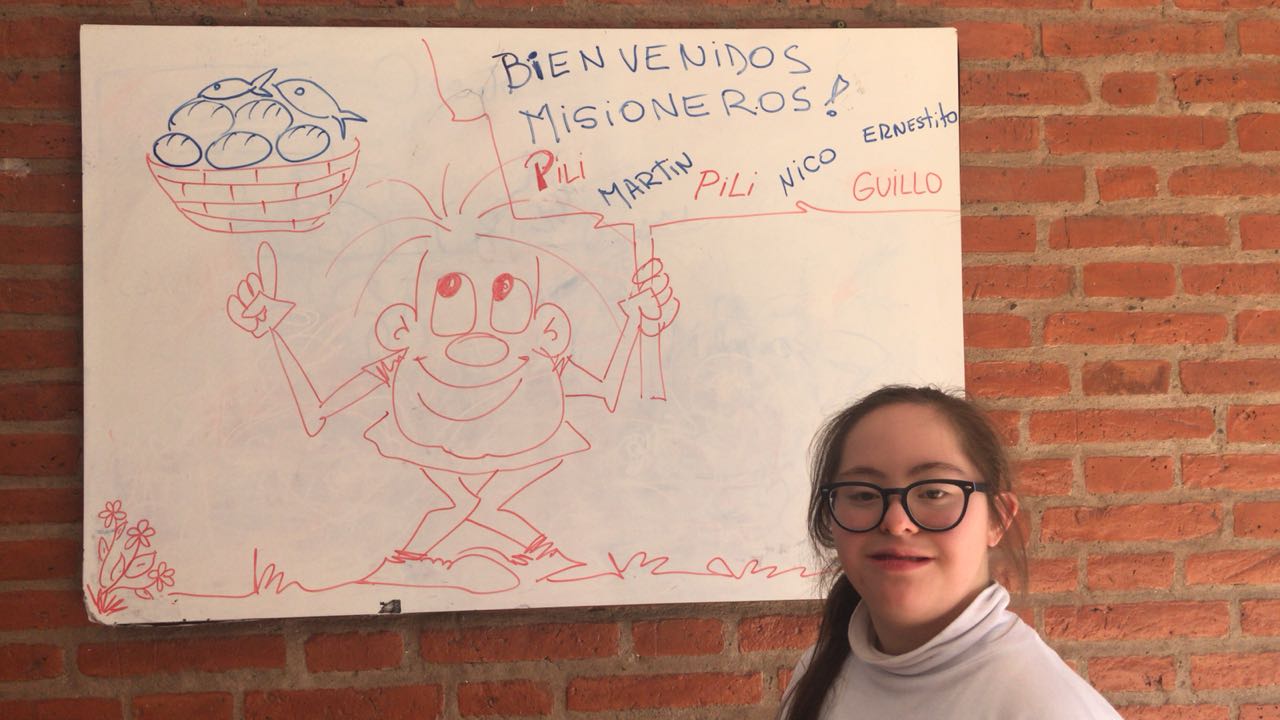 BiENVENiDOS
MiSiONEROS!
ERNEStito
PiLi MARTiN PiLi NiCO GUiLLO